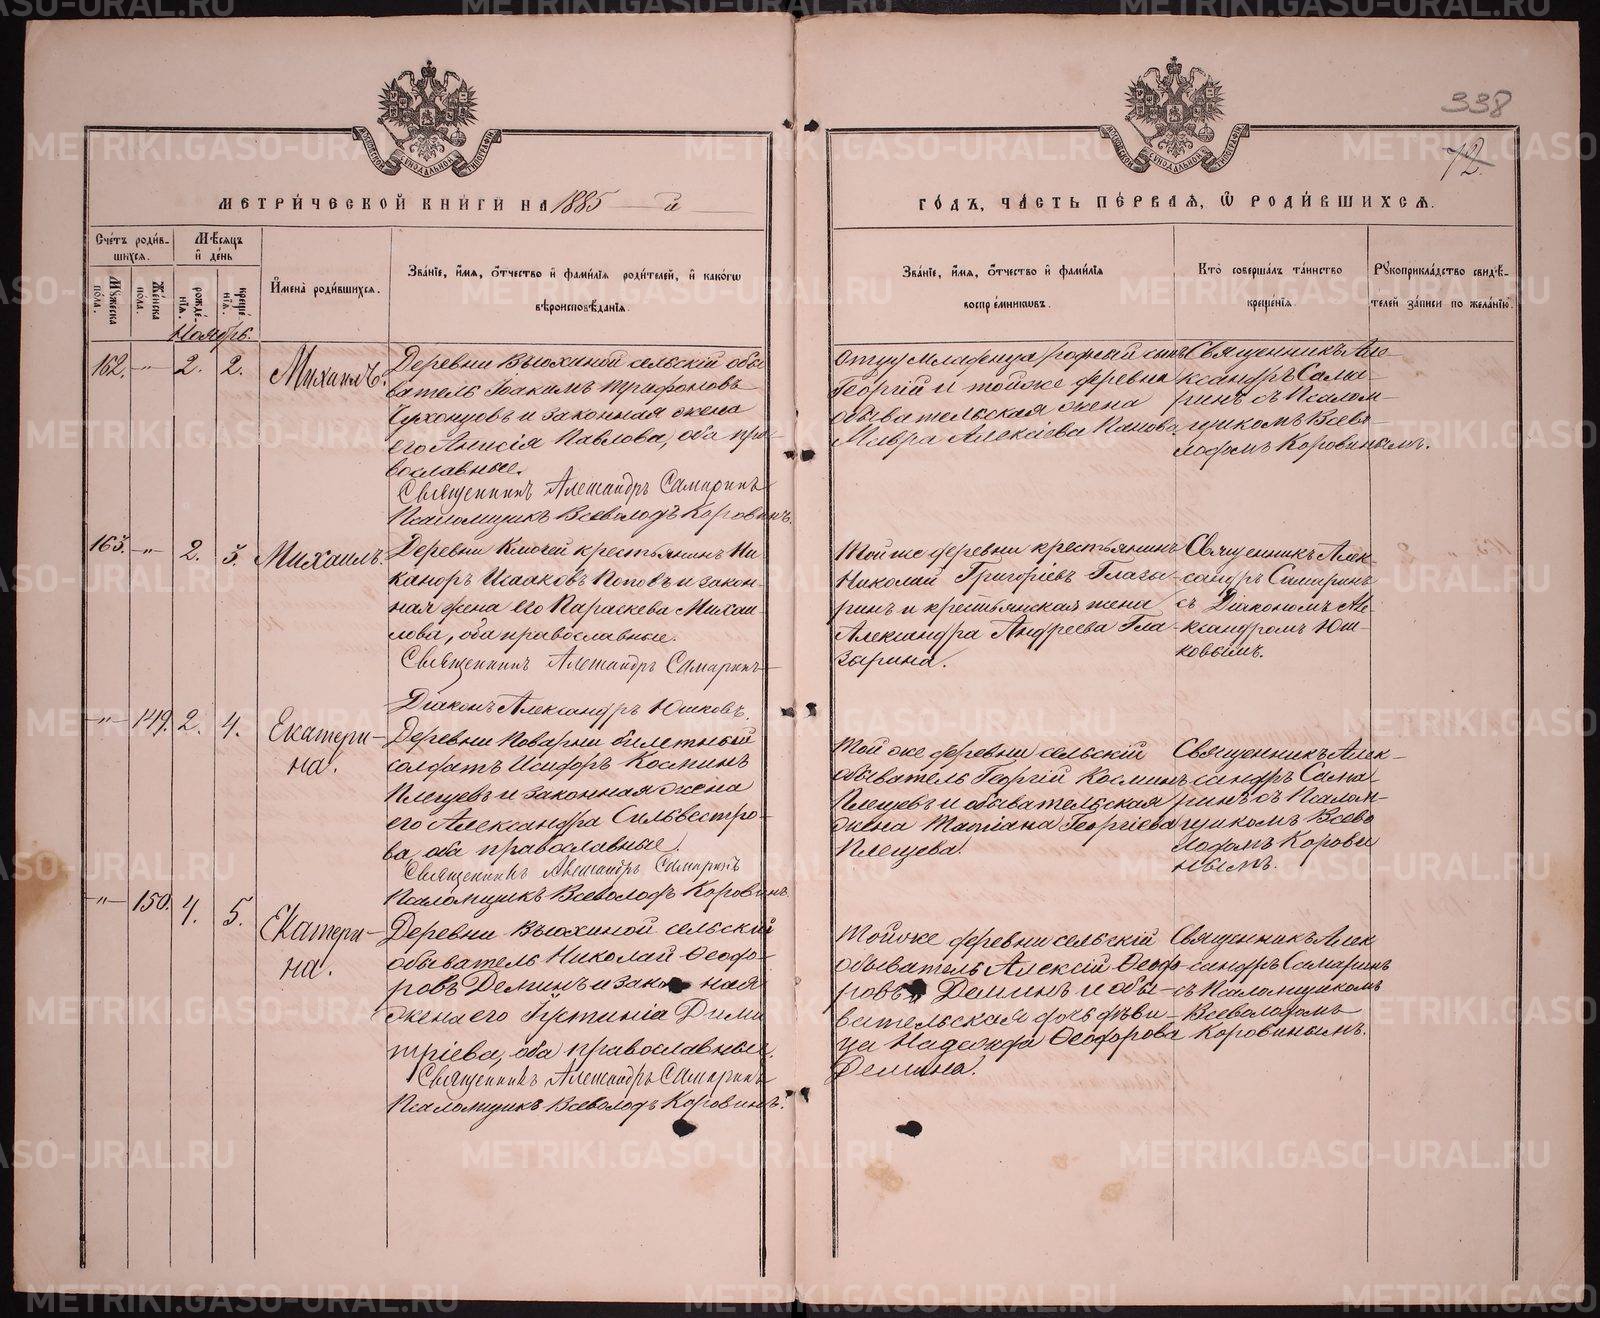 338
72.
МЕТРИ́ЧЕСКОЙ КНИ́ГИ НА 1885 й
ГО́ДЪ, ЧА́СТЬ ПЕ́РВАѦ, Ѽ РОДИ́ВШИХСѦ.
Сче́тъ роди́в-
шихсѧ.
Мѣ́сѧцъ
и҆ де́нь
Мꙋ́жеска по́ла.
Же́нска по́ла.
рожде́-
нїѧ.
креще́-
нїѧ.
И҆мена̀ роди́вшихсѧ.
Зва́нїе, и҆́мѧ, ѻ҆́тчество и҆ фами́лїѧ роди́телей, и҆ како́гѡ
вѣроисповѣ́данїѧ.
Зва́нїе, и҆́мѧ, ѻ҆́тчество и҆ фами́лїѧ
воспрїе́мникѡвъ.
Кто̀ соверша́лъ та́инство
креще́нїѧ.
Рꙋкоприкла́дство свидѣ́-
телей за́писи по жела́нїю.
Ноябрь.
162. -"- 2. 2. Михаилъ.
Деревни Вьюхиной сельскій обы-
ватель Іоакимъ Трифоновъ
Сухопцовъ и законная жена
его Анисія Павлова, оба пра-
вославные.
Священникъ Александръ Самаринъ
Псаломщикъ Всеволодъ Коровинъ.
Отцу младенца родный сынъ
Георгій и тойже деревни
обывательская жена
Мавра Алексіева Панова
Священникъ Але-
ксандръ Сама-
ринъ съ Псалом-
щикомъ Всево-
лодомъ Коровинымъ.
163. -"- 2. 3. Михаилъ.
Деревни Ключей крестьянинъ Ни-
каноръ Исааковъ Поповъ и закон-
ная жена его Параскева Михаи-
лова, оба православные.
Священникъ Александръ Самаринъ
Діаконъ Александръ Юшковъ.
Той же деревни крестьянинъ
Николай Григоріевъ Глазы-
ринъ и крестьянская жена
Александра Андреева Гла-
зырина.
Священникъ Алек-
сандръ Самаринъ
съ Діакономъ Але-
ксандромъ Юш-
ковымъ.
-"- 149. 2. 4. Екатери-
на.
Деревни Поварни билетный
солдатъ Исидоръ Косминъ
Плещевъ и законная жена
его Александра Сильвестро-
ва, оба православные.
Священникъ Александръ Самаринъ
Псаломщикъ Всеволодъ Коровинъ.
Той же деревни сельскій
обыватель Георгій Косминъ
Плещевъ и обывательская
жена Татіана Георгіева
Плещева.
Священникъ Алек-
сандръ Сама-
ринъ съ Псалом-
щикомъ Всево
лодомъ Корови
нымъ.
-"- 150. 4. 5. Екатери-
на.
Деревни Вьюхиной сельскій
обыватель Николай Ѳеодо-
ровъ Деминъ и законная
жена его Іустинія Дими
тріева, оба православные.
Священникъ Александръ Самаринъ
Псаломщикъ Всеволодъ Коровинъ.
Тойже деревни сельскій
обыватель Алексій Ѳеодо-
ровъ Деминъ и обы-
вательская дочь дѣви-
ца Надежда Ѳеодорова
Демина.
Священникъ Алек
сандръ Самаринъ
съ Псаломщикомъ
Всеволодомъ
Коровинымъ.
METRIKI.GASO-URAL.RU